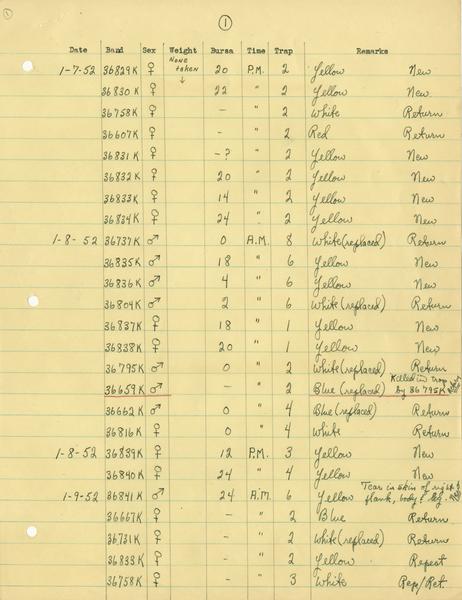 1
Date Band Sex Weight Bursa Time Trap Remarks
1-7-52 36829K ♀ None taken ↓ 20 P.M. 2 Yellow New
36830K ♀ 22 " 2 Yellow New
36758K ♀ - " 2 White Return
36607K ♀ - " 2 Red Return
36831K ♀ -? " 2 Yellow New
36832K ♀ 20 " 2 Yellow New
36833K ♀ 14 " 2 Yellow New
36834K ♀ 24 " 2 Yellow New
1-8-52 36737K ♂ 0 A.M. 8 White (replaced) Return
36835K ♂ 18 " 6 Yellow New
36836K ♂ 4 " 6 Yellow New
36804K ♂ 2 " 6 White (replaced) Return
36837K ♀ 18 " 1 Yellow New
36838K ♀ 20 " 1 Yellow New
36795K ♂ 0 " 2 White (replaced) Return
36659K ♂ - " 2 Blue (replaced) Killed in trap by 36795K
36662K ♂ 0 " 4 Blue (replaced) Return
36816K ♀ 0 " 4 White Return
1-8-52 36839K ♀ 12 P.M. 3 Yellow New
36840K ♀ 24 " 4 Yellow New
1-9-52 36841K ♂ 24 A.M. 6 Yellow Tear in skin of right flank, body & leg.
36667K ♀ - " 2 Blue Return
36731K ♀ - " 2 White (replaced) Return
36833K ♀ - " 2 Yellow Repeat
36758K ♀ - " 3 White Rep/Ret.